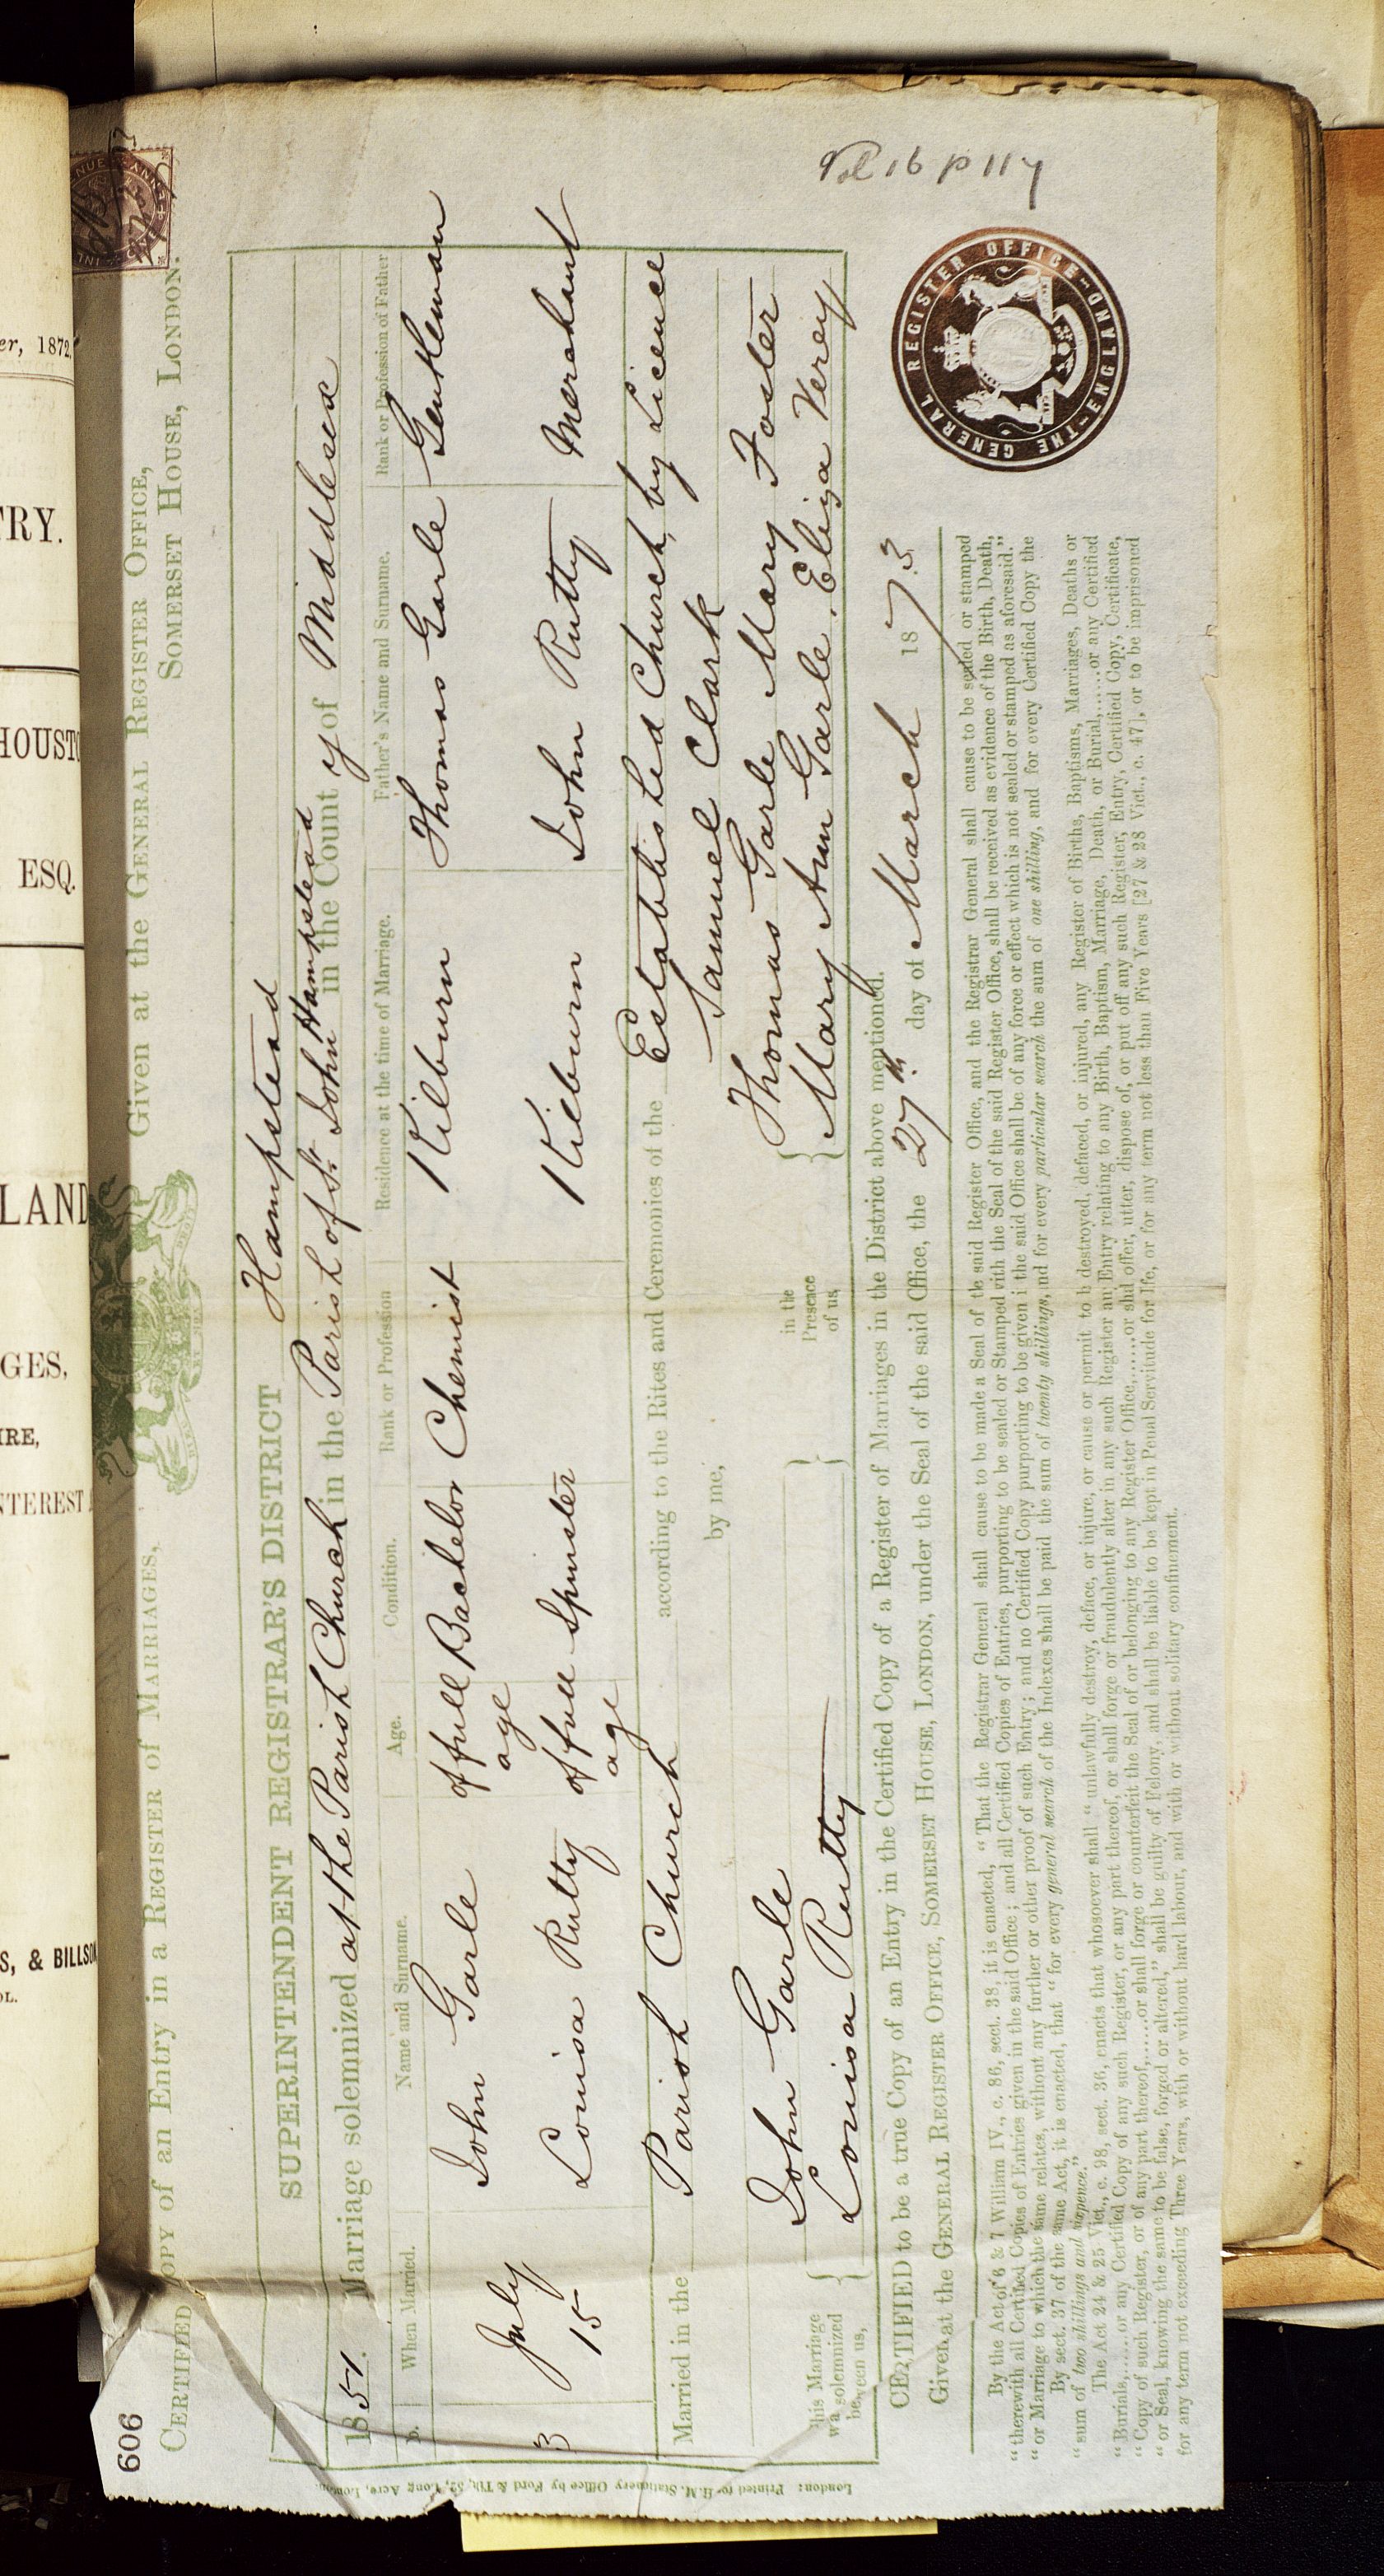 606
CERTIFIED COPY of an Entry in a REGISTER OF MARRIAGES,
Given at the GENERAL REGISTER OFFICE,
SOMERSET HOUSE, LONDON.
SUPERINTENDENT REGISTRAR'S DISTRICT Hampstead
1851. Marriage solemnized at the Parish Church in the Parish of St. John Hampstead in the County of Middlesex
When Married. Name and Surname. Age. Condition. Rank or Profession Residence at the time of Marriage. Father's Name and Surname. Rank or Profession of Father
3 July 15 John Garle of full age Bachelor Chemist Kilburn Thomas Garle Gentleman
Louisa Rutty of full age Spinster Kilburn John Rutty Merchant
Married in the Parish Church according to the Rites and Ceremonies of the Established Church, by Licence
by me, Samuel Clark
This Marriage was solemnized between us, { John Garle
Louisa Rutty } in the Presence of us, { Thomas Garle Mary Foster
Mary Ann Garle. Eliza Verey
CERTIFIED to be a true Copy of an Entry in the Certified Copy of a Register of Marriages in the District above mentioned.
Given at the GENERAL REGISTER OFFICE, SOMERSET HOUSE, LONDON, under the Seal of the said Office, the 27th day of March 1873
By the Act of 6 & 7 William IV., c. 86, sect. 38, it is enacted, "That the Registrar General shall cause to be made a Seal of the said Register Office, and the Registrar General shall cause to be sealed or stamped
"therewith all Certified Copies of Entries given in the said Office; and all Certified Copies of Entries, purporting to be sealed or Stamped with the Seal of the said Register Office, shall be received as evidence of the Birth, Death,
"or Marriage to which the same relates, without any further or other proof of such Entry; and no Certified Copy purporting to be given in the said Office shall be of any force or effect which is not sealed or stamped as aforesaid."
By sect. 37 of the same Act, it is enacted, that "for every general search of the Indexes shall be paid the sum of twenty shillings, and for every particular search the sum of one shilling, and for every Certified Copy the
"sum of two shillings and sixpence."
The Act 24 & 25 Vict., c. 98, sect. 36, enacts that whosoever shall "unlawfully destroy, deface, or injure, or cause or permit to be destroyed, defaced, or injured, any Register of Births, Baptisms, Marriages, Deaths or
"Burials,......or any Certified Copy of any such Register, or any part thereof, or shall forge or fraudulently alter in any such Register any Entry relating to any Birth, Baptism, Marriage, Death, or Burial,......or any Certified
"Copy of such Register, or of any part thereof,......or shall forge or counterfeit the Seal of or belonging to any Register Office,......or shall offer, utter, dispose of, or put off any such Register, Entry, Certified Copy, Certificate,
"or Seal, knowing the same to be false, forged or altered," shall be guilty of Felony, and shall be liable to be kept in Penal Servitude for life, or for any term not less than Five Years [27 & 28 Vict., c. 47], or to be imprisoned
for any term not exceeding Three Years, with or without hard labour, and with or without solitary confinement.
THE GENERAL REGISTER OFFICE ENGLAND
Vol 16 p 117
London: Printed for H.M. Stationery Office by Ford & Tilt, 52, Long Acre, London.
er, 1872.
TRY.
HOUST
ESQ.
LAND
GES,
IRE,
NTEREST
S, & BILLSO
OL.